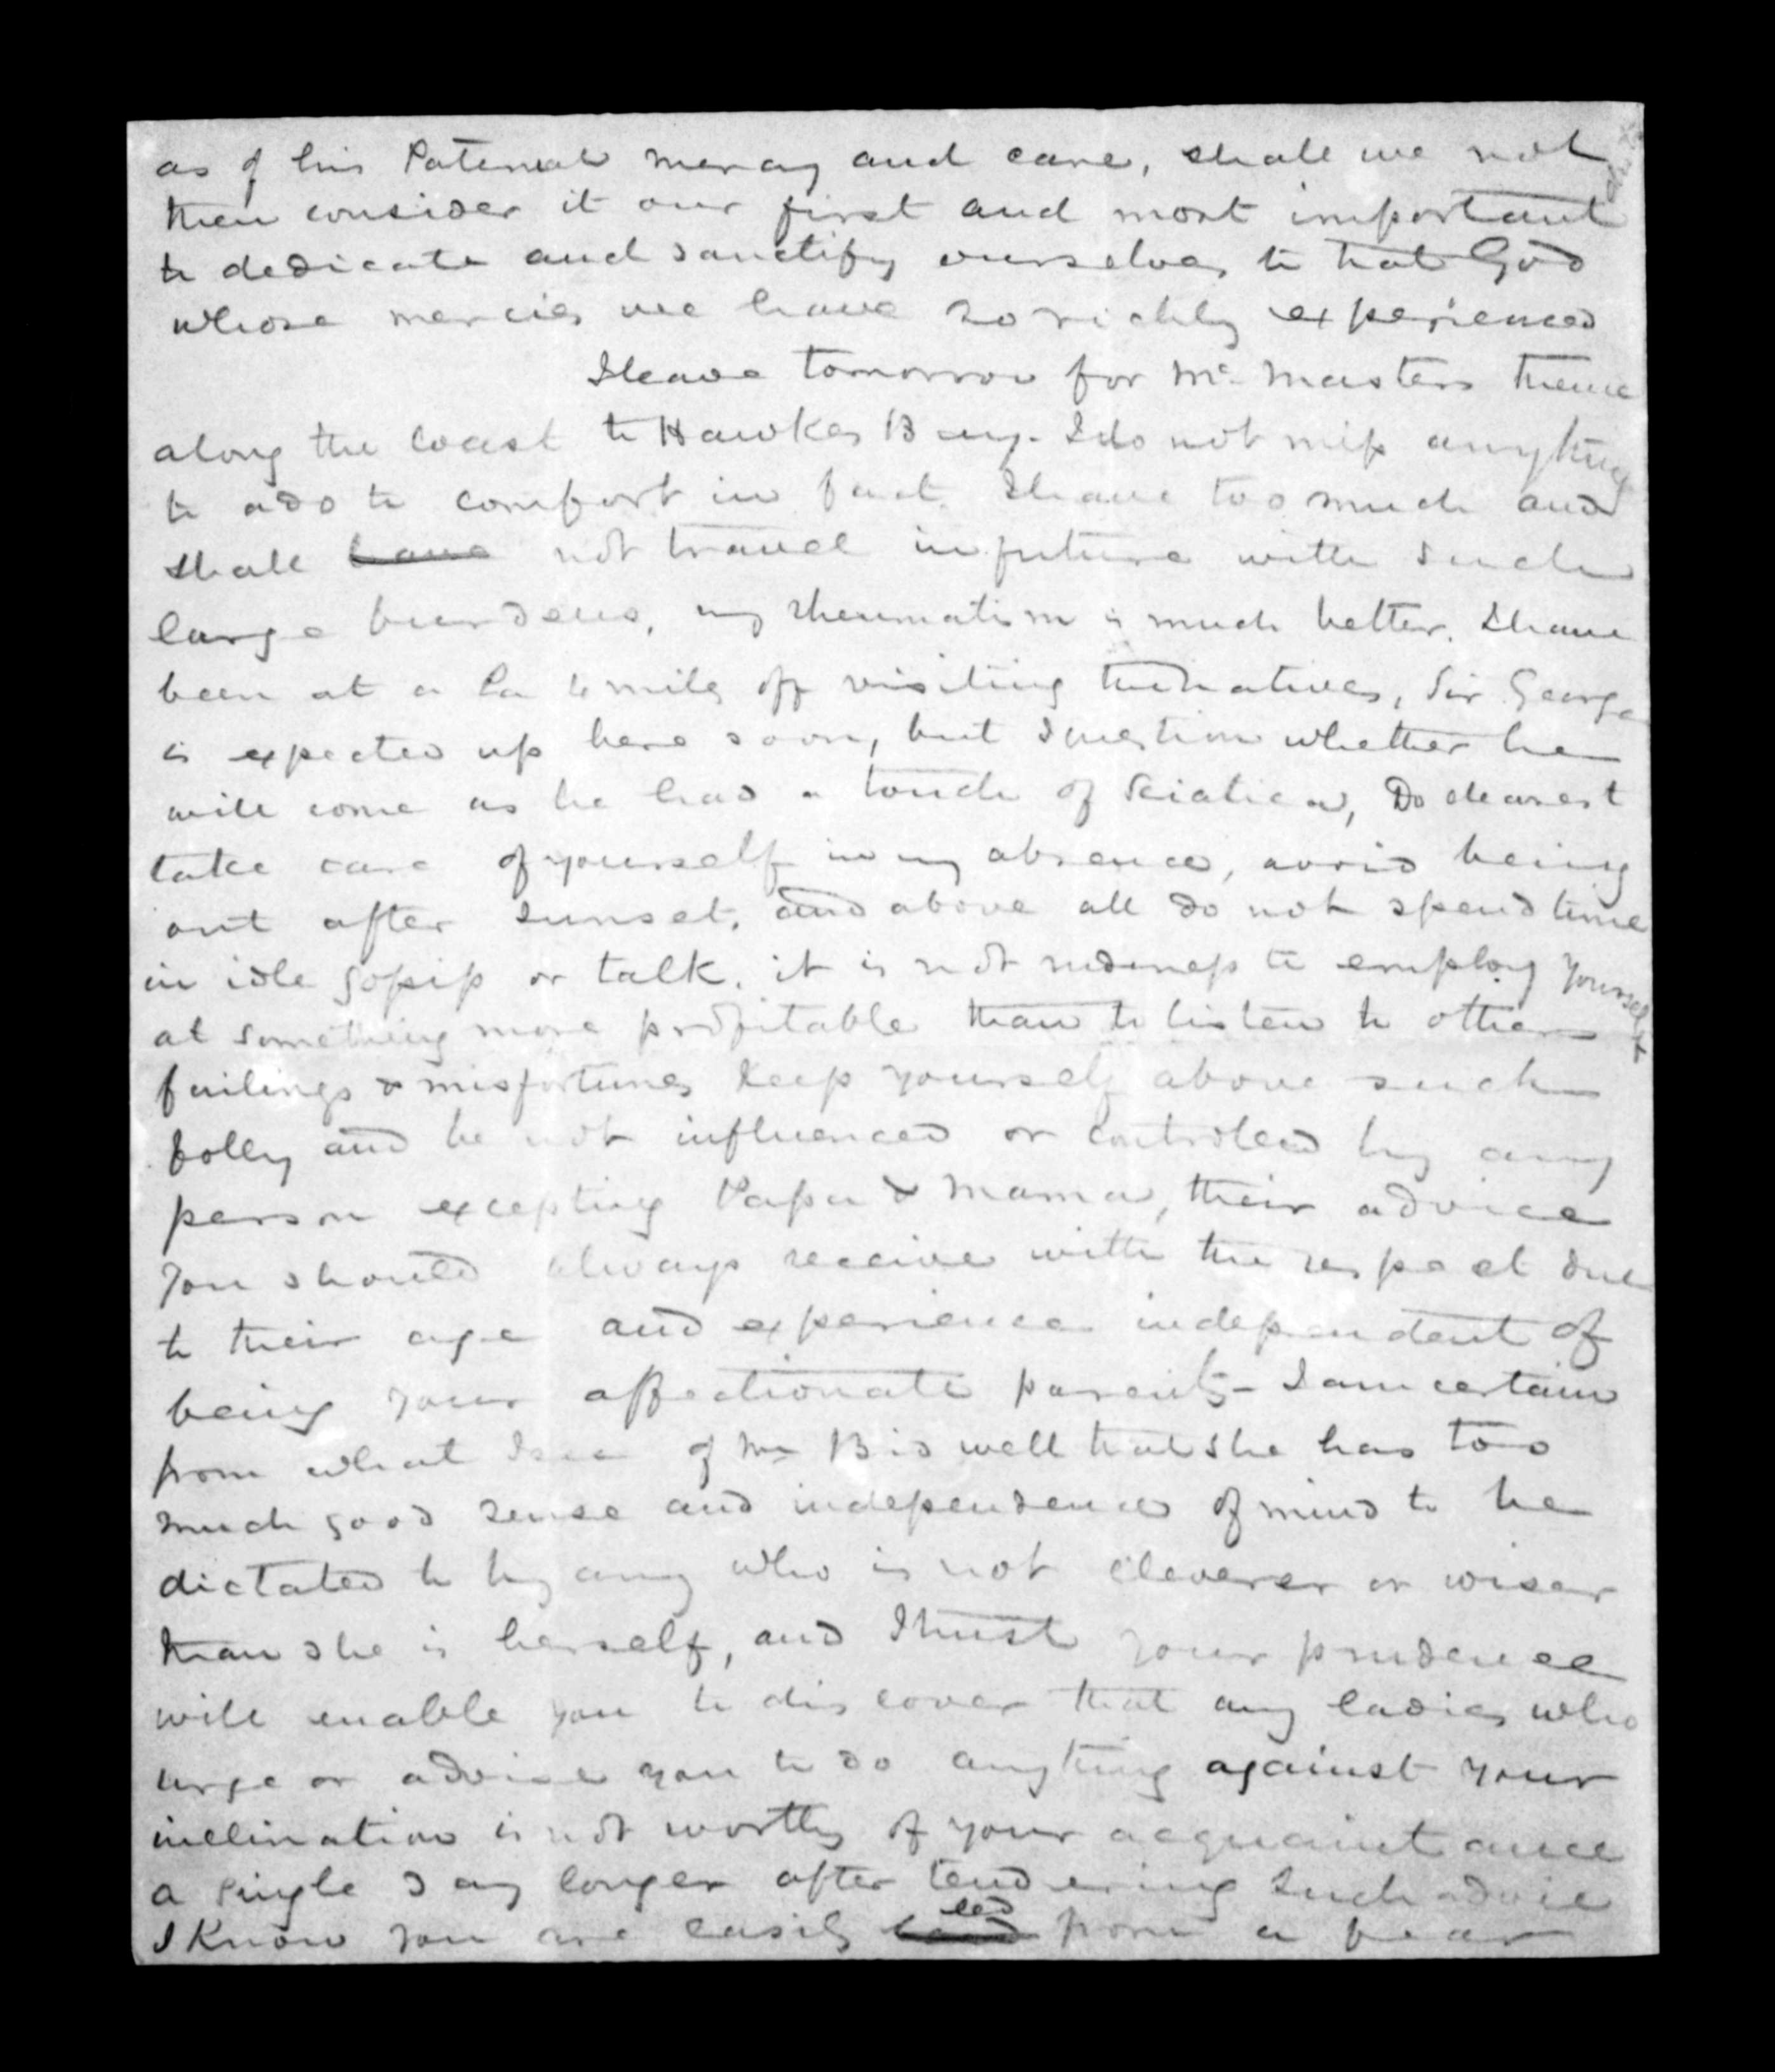 as of his Paternal mercy and care, shall we not
then consider it our first and most important duty
to dedicate and sanctify ourselves to that God
whose mercies we have so richly experienced
I leave tomorrow for Mc Masters thence
along the coast to Hawkes Bay. I do not miss anything
to add to comfort in fact I have too much and
shall have not travel in future with such
large burdens, my rheumatism is much better. I have
been at a Pa 4 miles off visiting the natives, Sir George
is expected up here soon, but I question whether he
will come as he had a touch of Sciatica, Do dearest
take care of yourself in my absence, avoid being
out after sunset, and above all do not spend time
in idle gossip or talk. it is not rudeness to employ yourself
at something more profitable than to listen to others
failings & misfortunes keep yourself above such
folly and be not influenced or controled by any
person excepting Papa & Mama, their advice
you should always receive with the respect due
to their age and experience independent of
being your affectionate parents - I am certain
from what I see of Mrs Bidwell that she has too
much good sense and independence of mind to be
dictated to by any who is not cleverer or wiser
than she is herself, and I trust your prudence
will enable you to discover that any ladies who
urge or advise you to do anything against your
inclination is not worthy of your acquaintance
a single day longer after tendering such advice
I know you are easily led from a fear